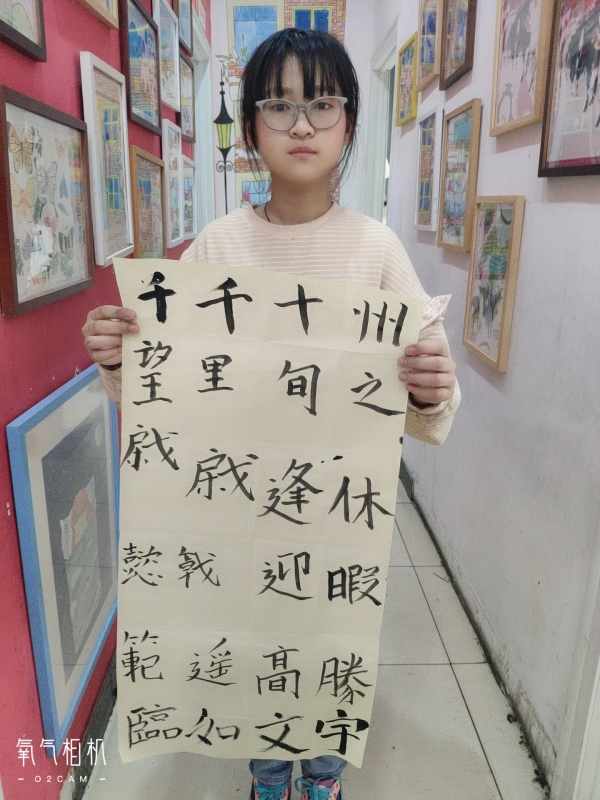 州之休暇勝宇
十旬逢迎高文
千里戟遥如
千望懿範臨
氧气相机
O2CAM